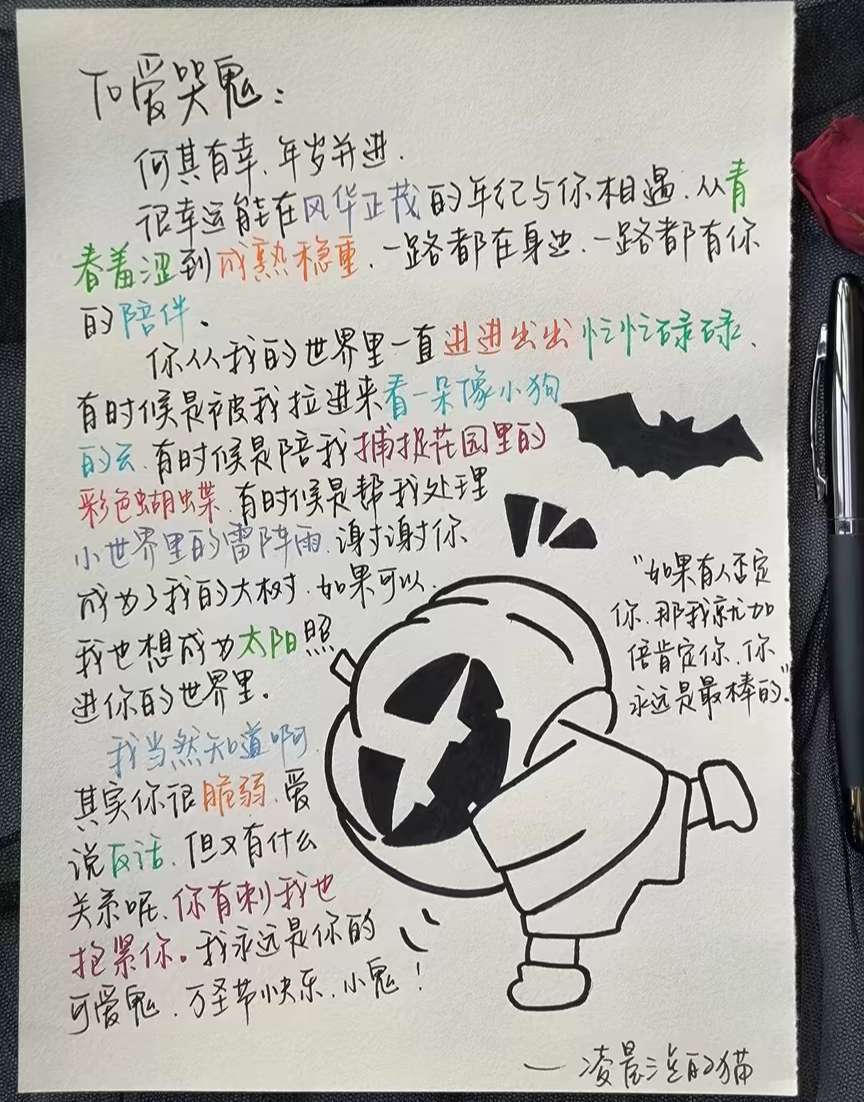 To爱哭鬼：
何其有幸、年岁并进.
很幸运能在风华正茂的年纪与你相遇、从青
春羞涩到成熟稳重、一路都在身边、一路都有你
的陪伴。
你从我的世界里一直进进出出忙忙碌碌、
有时候是被我拉进来看一朵像小狗
的云、有时候是陪我捕捉花园里的
彩色蝴蝶、有时候是帮我处理
小世界里的雷阵雨、谢谢你
成为了我的大树、如果可以、
我也想成为太阳照
进你的世界里。
我当然知道啊、
其实你很脆弱、爱
说反话、但又有什么
关系呢、你有刺我也
抱紧你。我永远是你的
可爱鬼、万圣节快乐、小鬼！
"如果有人否定
你、那我就加
倍肯定你、你
永远是最棒的."
—凌晨 的猫